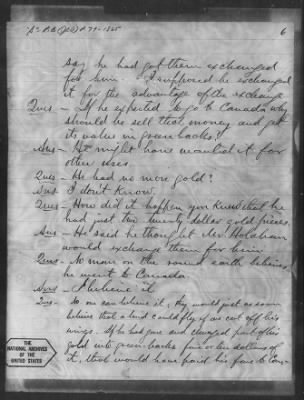 6
say he had got them exchanged
for him. I supposed he exchanged
it for the advantage of the exchange
Ques - If he expected to go to Canada why
should he sell that money and get
its value in green backs?
Ans - He might have wanted it for
other uses.
Ques - He had no more gold?
Ans I don't know.
Ques - How did it happen you knew that he
had just two twenty dollar gold pieces.
Ans - He said he thought Mr. Holahan
would exchange them for him.
Ques - No man on the round earth believes
he went to Canada.
Ans - I believe it
Ques - No one can believe it, they would just as soon
believe that a bird could fly if we cut off his
wings. If he had gone and changed part of his
gold into green backs five or ten dollars of
it, that would have paid his fare to Can-
THE
NATIONAL ARCHIVES
OF THE
UNITED STATES